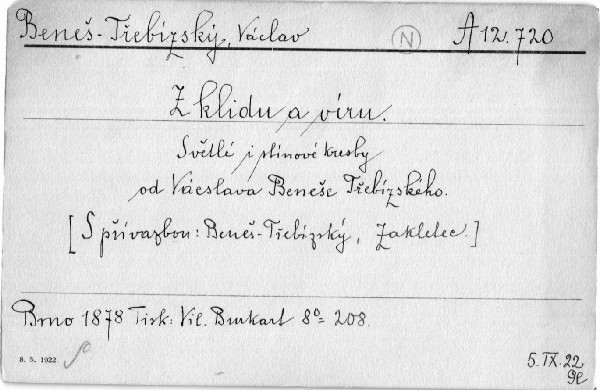 Beneš-Třebízský, Václav
N
A 12.720
Z klidu a víru.
Světlé i stinové kresby
od Václava Beneše Třebízského.
[S přívazbou: Beneš-Třebízský, Zakletec.]
Brno 1878 Tisk: Vil. Burkart 8º = 208.
8. 5. 1922
5. IX. 22.